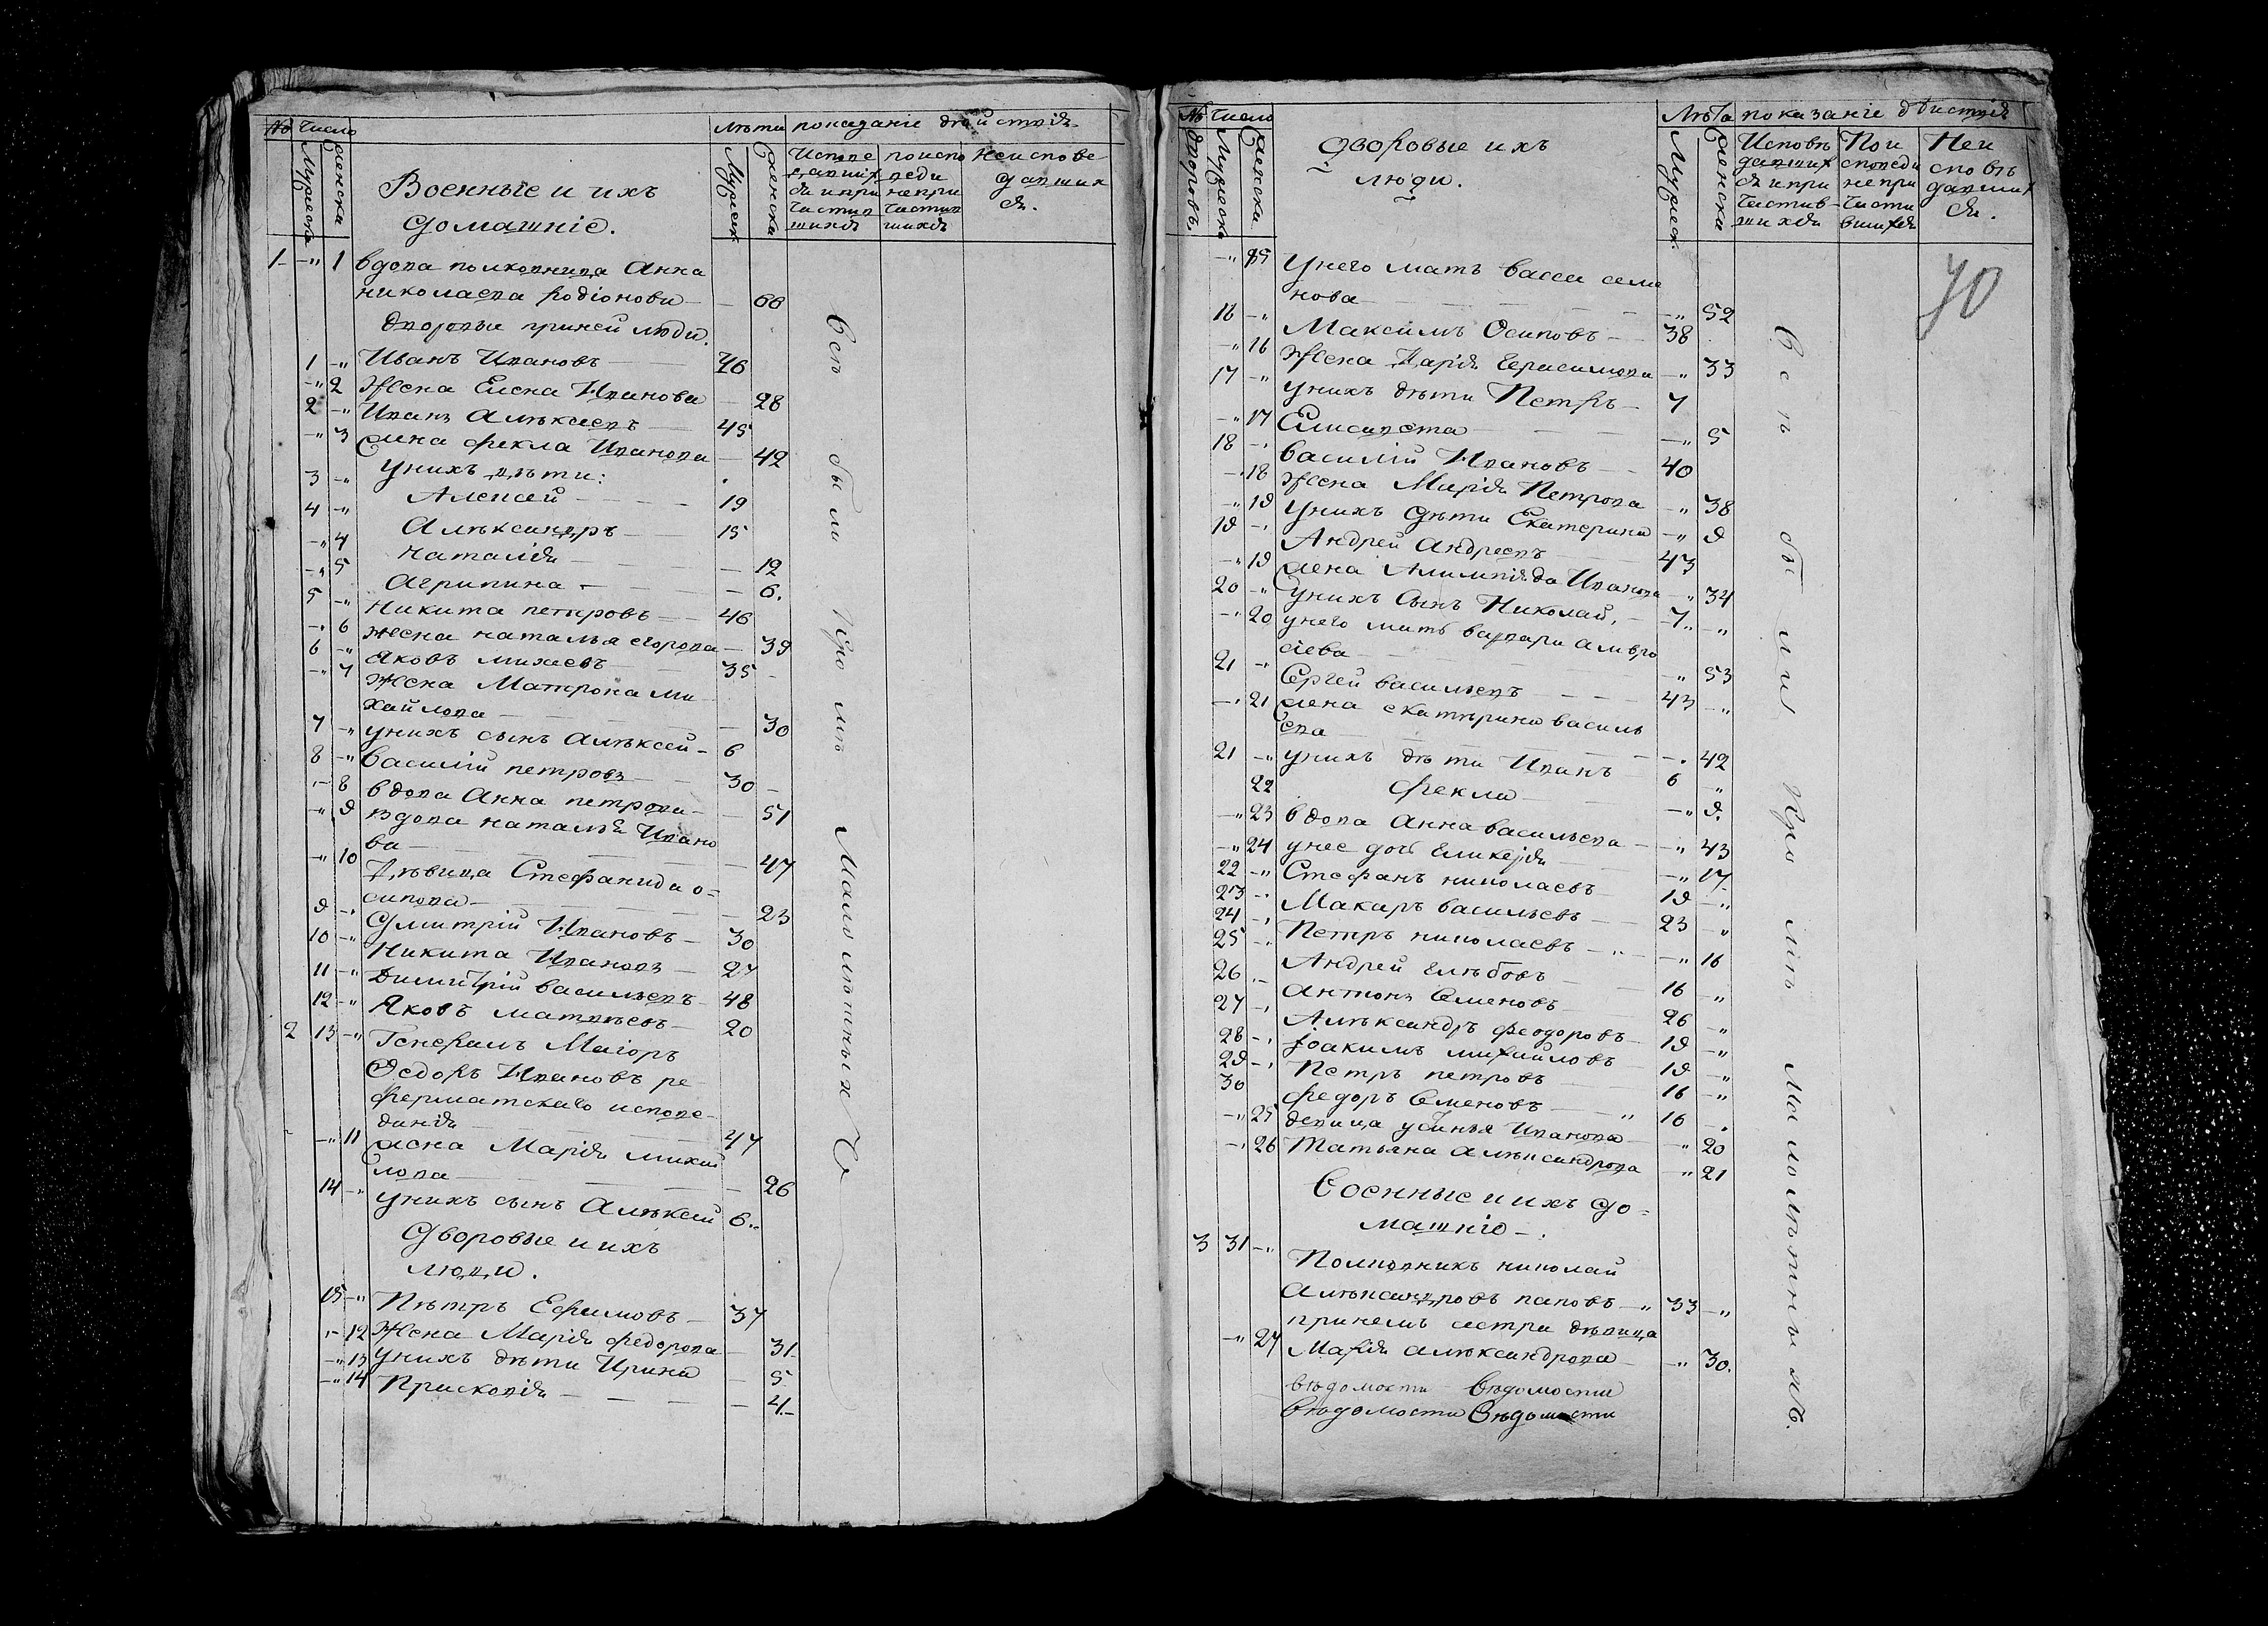 № Число Лѣта показаніе дѣйствія
Мужеска Женска Военные и ихъ домашніе. Мужеск. Женска Исповедавшихся и причастившихся по исповеди не причастившихся неисповедавшихся.
1 " 1 вдова полковница Анна
николаева Родіонова 66
дворовые при ней люди.
1 " Иванъ Ивановъ 46
" 2 Жена Елена Иванова 28
2 " Иванъ Алѣксеевъ 45
" 3 жена Фекла Иванова 42
у нихъ дѣти:
3 " Алексей 19
4 " Алѣксандръ 15
" 4 Наталія 12
" 5 Агрипина 6.
5 " Никита петровъ 46
" 6 Жена наталья егорова 39
6 " Яковъ михеевъ 35
" 7 Жена Матрона Ми
хайлова 30
7 " у нихъ сынъ Алѣксей 6
8 " Василій петровъ 30
" 8 вдова Анна петрова 51
" 9 вдова наталья Ивано
ва 47
" 10 Дѣвица Стефанида о=
сипова 23
9 " Дмитрій Ивановъ 30
10 " Никита Ивановъ 27
11 " Димитрій васильевъ 48
12 " Яковъ матвѣевъ 20
2 13 " Генералъ Маіоръ
Федоръ Ивановъ ре
ферматскаго испове
данія 47
" 11 жена Марія михай
лова 26
14 " у нихъ сынъ Алѣксей 6.
Дворовые и ихъ
люди.
15 " Пѣтръ Ефимовъ 37
" 12 Жена Марія федорова 31
" 13 у нихъ дѣти Ирина 5
" 14 Прасковія 4
Всѣ были кромѣ Малолѣтныхъ
№ дворовъ. Число Лѣта показаніе дѣйствія
Мужеска Женска дворовые ихъ люди. Мужеск. Женска Исповѣдавшихся и причастившихся По исповеди не причастившихся Неисповѣдавшихся.
40
" 15 У него мать васса семе
нова " 52
16 " Максимъ Осиповъ 38
" 16 Жена Дарія Герасимова " 33
17 " у нихъ дѣти Петръ 7
" 17 Елисавета " 5
18 " Василій Ивановъ 40
" 18 Жена Марія Петрова " 38
" 19 у нихъ дѣти Екатерина " 9
19 " Андрей андреевъ 43
" 19 жена Алимпіяда Иванова " 34
20 " у нихъ Сынъ Николай, 7 "
" 20 у него мать варвара амвро
сіева " 53
21 " Сергей васильевъ 43 "
" 21 жена екатѣрина василь
ева " 42
21 " у нихъ дѣти Иванъ 6 "
22 Фекла " 9.
" 23 вдова Анна васильева " 43
" 24 у нее дочь Гликерія " 17
22 " Стефанъ николаевъ 19 "
23 " Макаръ васильевъ 23 "
24 " Петръ николаевъ " 16
25 " Андрей Глѣбовъ 16 "
26 " антонъ Семеновъ 26 "
27 " Алѣксандръ феодоровъ 19 "
28 " Іоакимъ михайловъ 19 "
29 " Петръ петровъ 16 "
30 федоръ Семеновъ 16 "
" 25 девица устинья Иванова " 20
" 26 Татьяна алѣксандрова " 21
Военные и ихъ до=
машніе.
3 31 " Полковникъ николай
Алѣксандровъ паповъ 33 "
при немъ сестра дѣвица
" 27 Марія алѣксандрова " 30.
вѣдомости вѣдомости
вѣдомости вѣдомости
Всѣ были кромѣ Малолѣтныхъ.